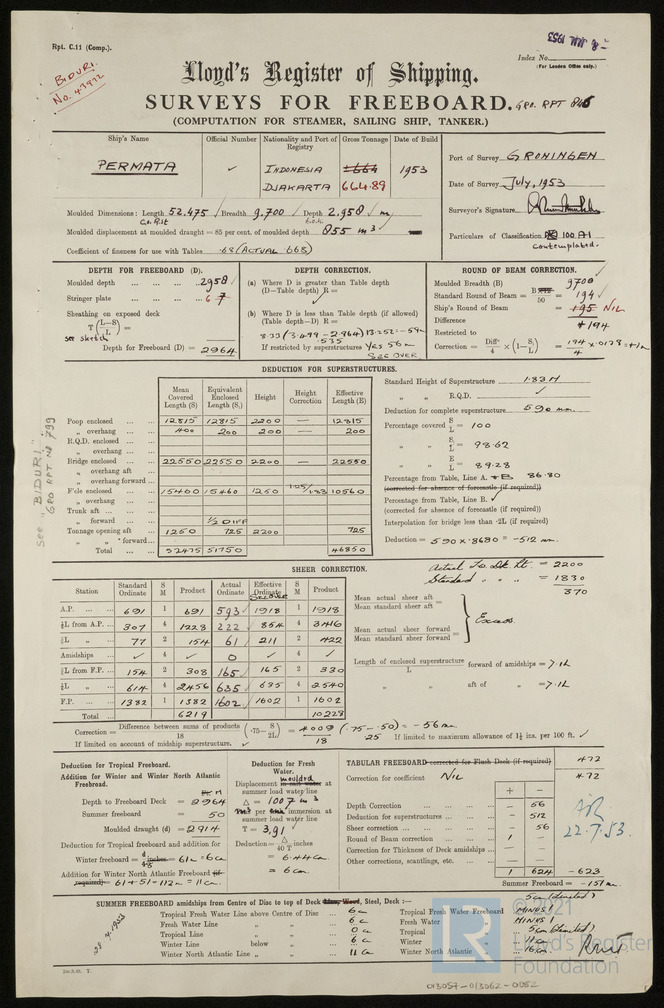 Rpt. C.11 (Comp.).
8 JUL 1953
Index No.
(For London Office only.)
BIDURI.
No. 43972
Lloyd's Register of Shipping.
SURVEYS FOR FREEBOARD. GRO. RPT 845
(COMPUTATION FOR STEAMER, SAILING SHIP, TANKER.)
Ship's Name
Official Number
Nationality and Port of Registry
Gross Tonnage
Date of Build
PERMATA
INDONESIA
DJAKARTA
664
664.89
1953
Port of Survey GRONINGEN
Date of Survey July, 1953
Surveyor's Signature
Particulars of Classification 100 A1
contemplated.
Moulded Dimensions: Length 52.475 Breadth 9.700 Depth 2.958 m
Moulded displacement at moulded draught = 85 per cent. of moulded depth 855 m3
Coefficient of fineness for use with Tables .68 (ACTUAL .668)
DEPTH FOR FREEBOARD (D).
Moulded depth 2958
Stringer plate 6
Sheathing on exposed deck
T (L-S / L) =
see sketch
Depth for Freeboard (D) = 2964
DEPTH CORRECTION.
(a) Where D is greater than Table depth
(D—Table depth) R =
(b) Where D is less than Table depth (if allowed)
(Table depth—D) R =
If restricted by superstructures Yes 56
SEE OVER
ROUND OF BEAM CORRECTION.
Moulded Breadth (B) 9700
Standard Round of Beam = B / 50 = 194
Ship's Round of Beam = NIL
Difference
194
Restricted to
Correction = Diff / 4 × (1 - S₁ / L) = 194 / 4
DEDUCTION FOR SUPERSTRUCTURES.
Mean Covered Length (S)
Equivalent Enclosed Length (S₁)
Height
Height Correction
Effective Length (E)
Poop enclosed 12815 12815 2200 — 12815
„ overhang 400 200 200 — 200
R.Q.D. enclosed
„ overhang
Bridge enclosed 22550 22550 2200 — 22550
„ overhang aft
„ overhang forward
F'cle enclosed 15400 15460 1250 1.25/1.83 10560
„ overhang
Trunk aft
„ forward ½ DIFF
Tonnage opening aft 1250 725 2200 725
„ „ forward
Total 52475 51750 46850
SEE "BIDURI"
GRO RPT No 799
Standard Height of Superstructure 1.83 M
„ „ R.Q.D.
Deduction for complete superstructure 590 mm.
Percentage covered S / L = 100
„ „ S₁ / L = 98.62
„ „ E / L = 89.28
Percentage from Table, Line A. + B 86.80
(corrected for absence of forecastle (if required))
Percentage from Table, Line B.
(corrected for absence of forecastle (if required))
Interpolation for bridge less than ·2L (if required)
Deduction = 590 × .8680 = -512 mm.
SHEER CORRECTION.
Station
Standard Ordinate
S M
Product
Actual Ordinate
Effective Ordinate
SEE OVER
S M
Product
A.P. 691 1 691 593 1918 1 1918
⅙L from A.P. 307 4 1228 222 854 4 3416
⅓L „ 77 2 154 61 211 2 422
Amidships 4 0 4
⅓L from F.P. 154 2 308 165 165 2 330
⅙L „ 614 4 2456 635 635 4 2540
F.P. 1382 1 1382 1602 1602 1 1602
Total 6219 10228
= 2200
= 1830
370
Mean actual sheer aft
Mean standard sheer aft =
Mean actual sheer forward
Mean standard sheer forward =
Excess.
Length of enclosed superstructure / L forward of amidships = >.1L
„ aft of „ = >.1L
Correction = Difference between sums of products / 18 (·75 - S / 2L) = 4009 / 18 (.75 - .50) = -56 mm
If limited on account of midship superstructure.
25 If limited to maximum allowance of 1½ ins. per 100 ft.
Deduction for Tropical Freeboard.
Addition for Winter and Winter North Atlantic Freeboard.
Depth to Freeboard Deck = 2964
Summer freeboard = 50
Moulded draught (d) = 2914
Deduction for Tropical freeboard and addition for
Winter freeboard = d / 48 inches = 61 = 6 cm
Addition for Winter North Atlantic Freeboard (if required) = 61 + 51 = 112 = 11 cm.
Deduction for Fresh Water.
Displacement moulded at
summer load water line
Δ = 1007 m3
immersion at
summer load water line
T = 3,91
Deduction = Δ / 40 T inches
= 6.44 cm.
= 6 cm.
TABULAR FREEBOARD corrected for Flush Deck (if required) 472
Correction for coefficient NIL 472
+ -
Depth Correction — 56
Deduction for superstructures — 512
Sheer correction — 56
Round of Beam correction 1 —
Correction for Thickness of Deck amidships — —
Other corrections, scantlings, etc. — —
1 624 -623
Summer Freeboard = -151 mm.
22.7.53.
SUMMER FREEBOARD amidships from Centre of Disc to top of Deck Line, Wood, Steel, Deck :—
Tropical Fresh Water Line above Centre of Disc 6 cm
Fresh Water Line „ „ 6 cm
Tropical Line „ „ 0 cm
Winter Line below „ 6 cm
Winter North Atlantic Line „ „ 11 cm
5 cm
Tropical Fresh Water Freeboard MINUS 1
Fresh Water „ MINUS 1
Tropical „ 5 cm
Winter „ 11 cm
Winter North Atlantic „ 16 cm
© 2021
Lloyd's Register
Foundation
013057-013062-0052